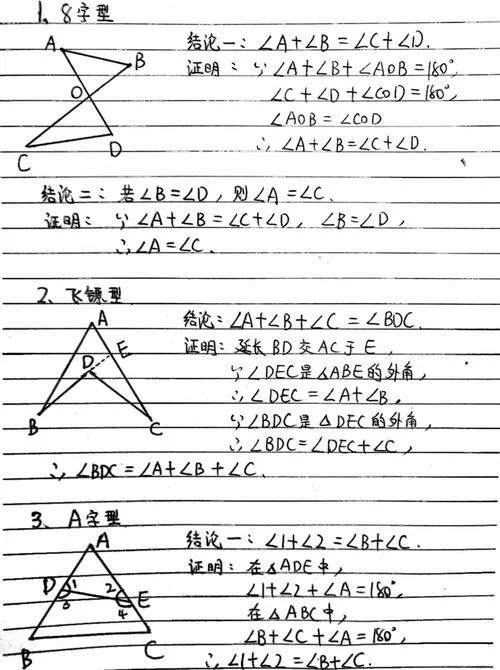 1、8字型
A
B
O
C
D
结论一：∠A+∠B=∠C+∠D.
证明：∵∠A+∠B+∠AOB=180°,
∠C+∠D+∠COD=180°,
∠AOB=∠COD
∴∠A+∠B=∠C+∠D.
结论二：若∠B=∠D，则∠A=∠C.
证明：∵∠A+∠B=∠C+∠D，∠B=∠D，
∴∠A=∠C.
2、飞镖型
A
D
E
B
C
结论：∠A+∠B+∠C=∠BDC.
证明：延长BD交AC于E，
∵∠DEC是△ABE的外角，
∴∠DEC=∠A+∠B，
∵∠BDC是△DEC的外角，
∴∠BDC=∠DEC+∠C，
∴∠BDC=∠A+∠B+∠C.
3、A字型
A
D 1 2 E
3 4
B
C
结论一：∠1+∠2=∠B+∠C.
证明：在△ADE中，
∠1+∠2+∠A=180°,
在△ABC中，
∠B+∠C+∠A=180°,
∴∠1+∠2=∠B+∠C.